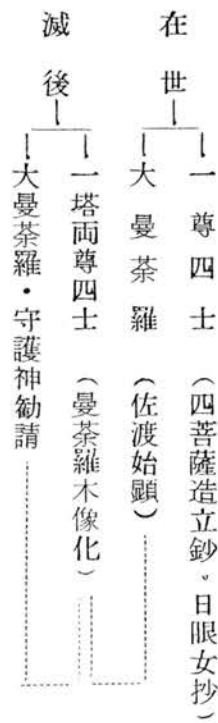 在世
一尊四士（四菩薩造立鈔。日眼女抄）
大曼荼羅（佐渡始顕）
滅後
一塔両尊四士（曼荼羅木像化）
大曼荼羅・守護神勧請